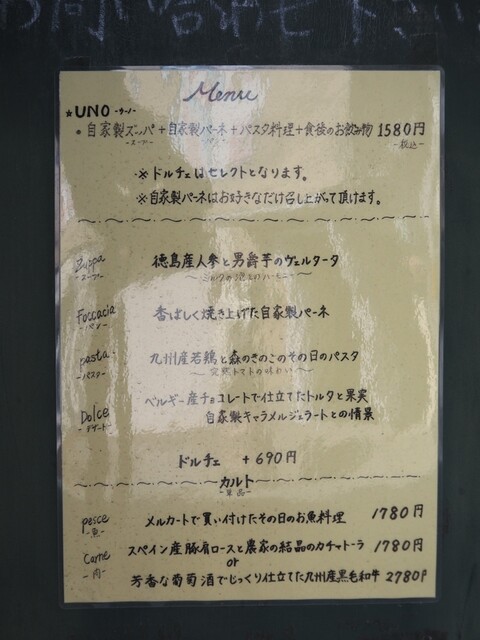 Menu
★UNO -ウーノ-
• 自家製ズッパ+自家製パーネ+パスタ料理+食後のお飲み物 1580円
-スープ- -パン- -税込-
※ドルチェはセレクトとなります。
※自家製パーネはお好きなだけ召し上がって頂けます。
Zuppa 徳島産人参と男爵芋のヴェルタータ
-スープ-
Foccacia 香ばしく焼き上げた自家製パーネ
-パン-
pasta 九州産若鶏と森のきのこのその日のパスタ
-パスタ- ~完熟トマトの味わい~
Dolce ベルギー産チョコレートで仕立てたトルタと果実
-デザート- 自家製キャラメルジェラートとの情景
ドルチェ +690円
カルト
-単品-
pesce メルカートで買い付けたその日のお魚料理 1780円
-魚-
Carne スペイン産豚肩ロースと農家の結晶のカチャトーラ 1780円
-肉- or
芳香な葡萄酒でじっくり仕立てた九州産黒毛和牛 2780円